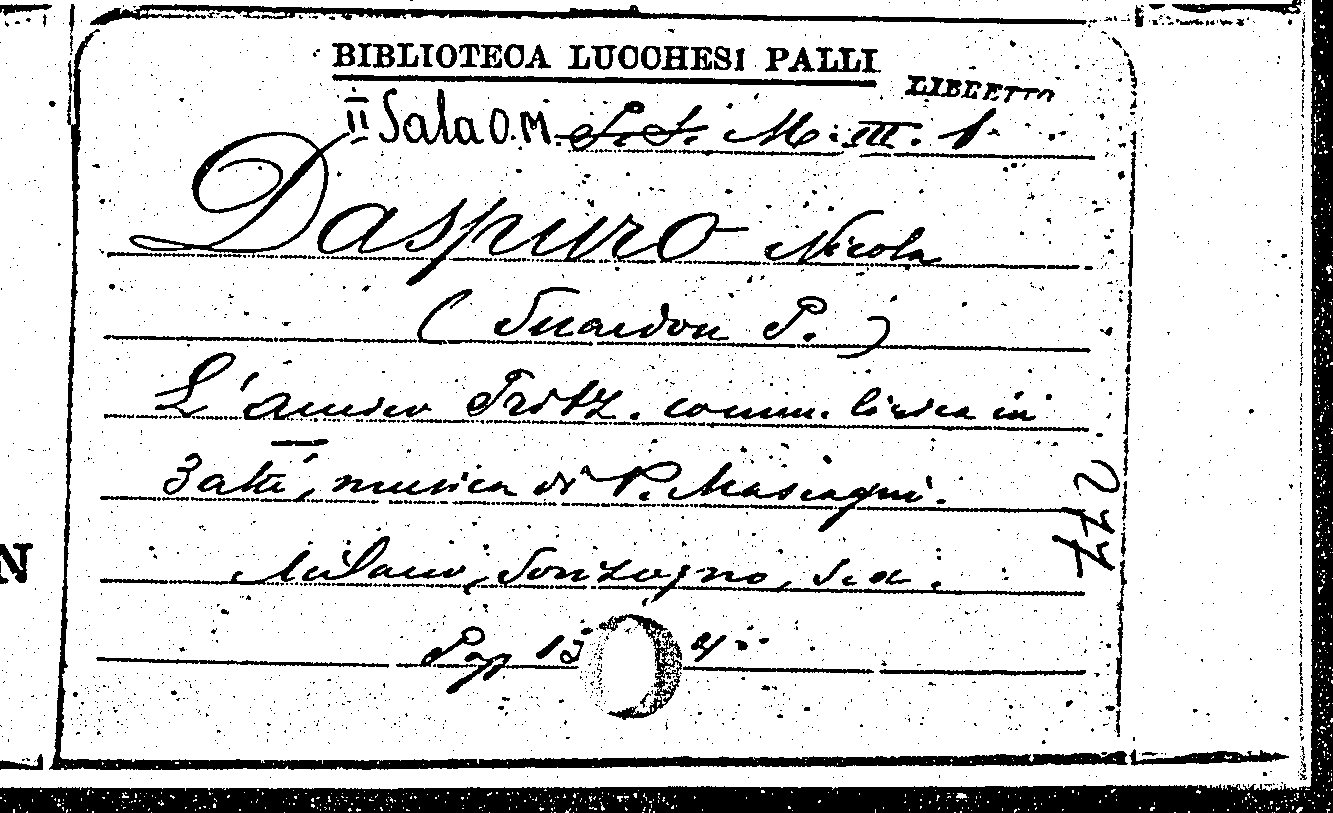 BIBLIOTECA LUCCHESI PALLI
LIBRETTO
II Sala O.M. S.S. M. III. 1
Daspuro Nicola
(Suardon P.)
L'amico Fritz. comm. lirica in
3 atti, musica di P. Mascagni.
Milano, Sonzogno, s.a.
Pag 4°
N